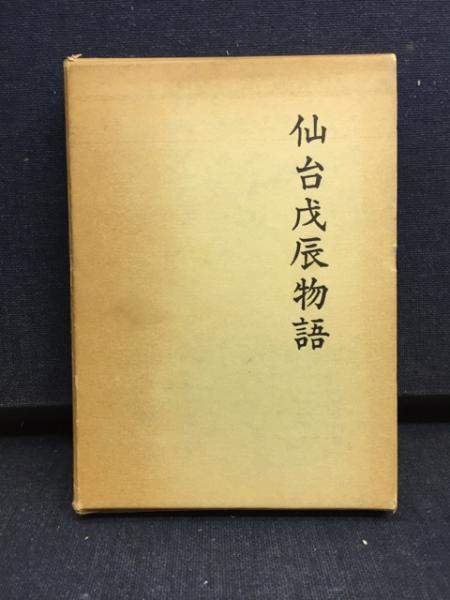 仙台戊辰物語